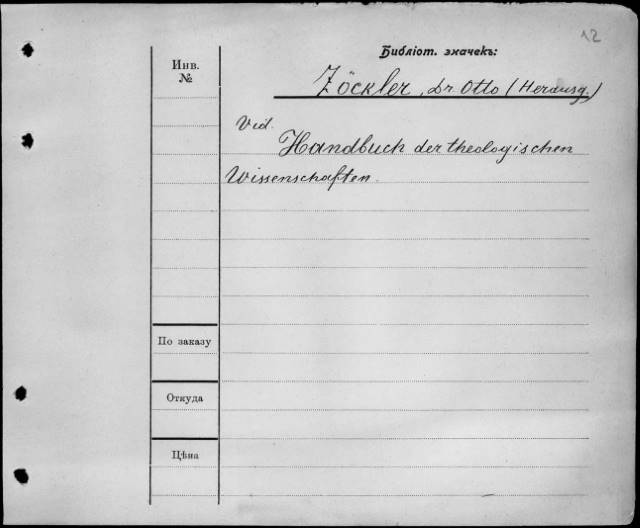 12
Библіот. значекъ:
Инв.
№
Zöckler, Dr. Otto (Herausg.)
Vid.
Handbuch der theologischen
Wissenschaften.
По заказу
Откуда
Цѣна